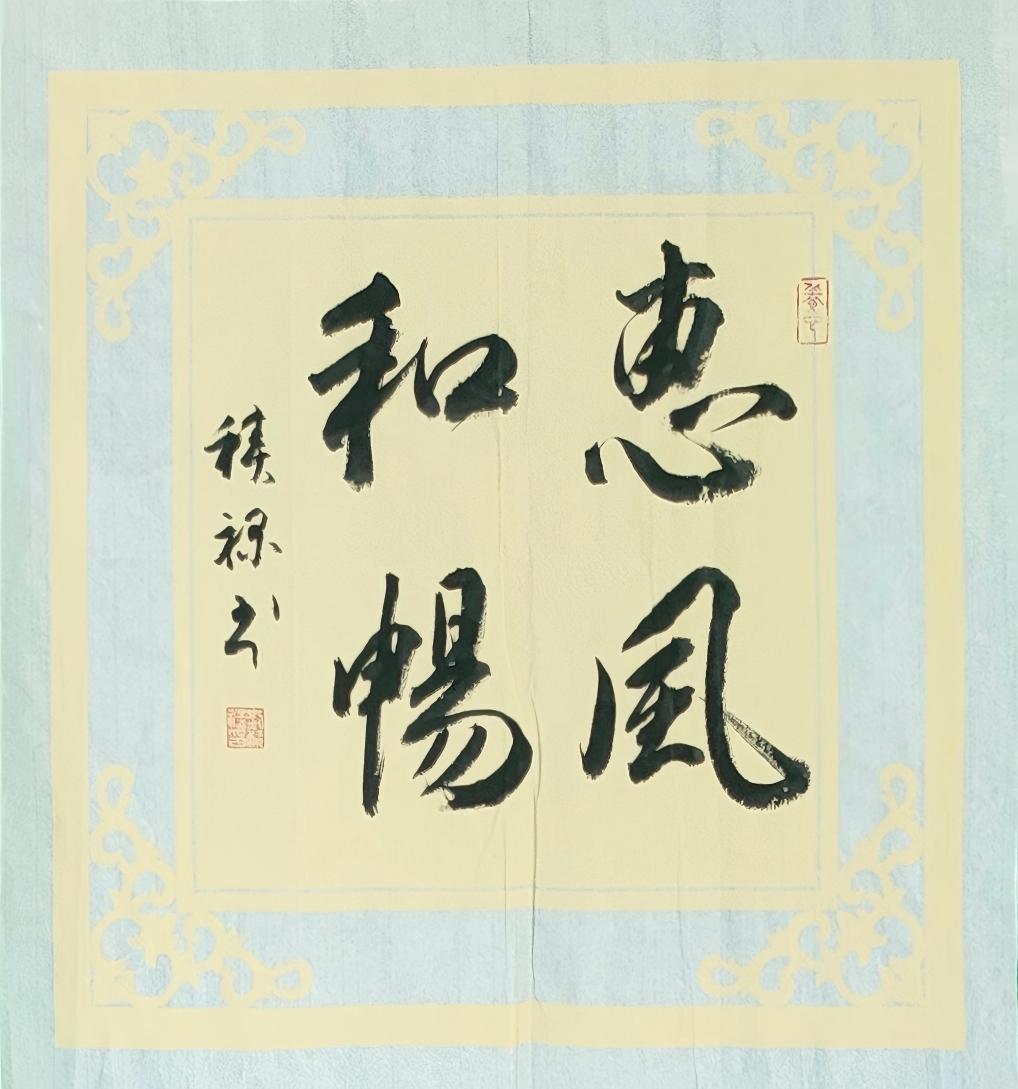 惠風
和暢
積祿书